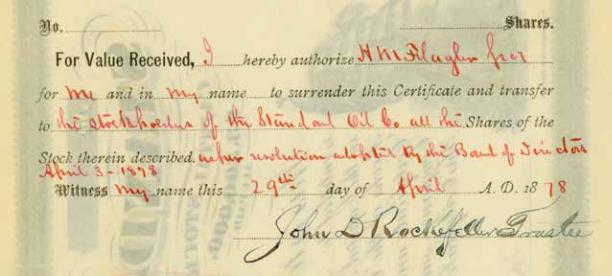 No. Shares.
For Value Received, I hereby authorize H M Flagler Secy
for Me and in My name to surrender this Certificate and transfer
to the stockholders of the Standard Oil Co all the Shares of the
Stock therein described. as per resolution adopted by the Board of Directors
April 3 - 1878
Witness My name this 29th day of April A. D. 1878
John D Rockefeller Trustee